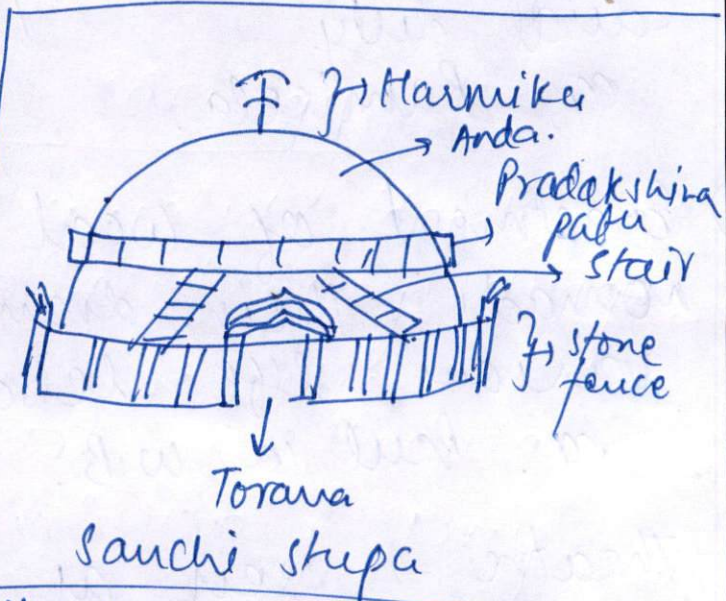 Harmika
Anda.
Pradakshina
path
stair
stone
fence
Torana
Sanchi stupa